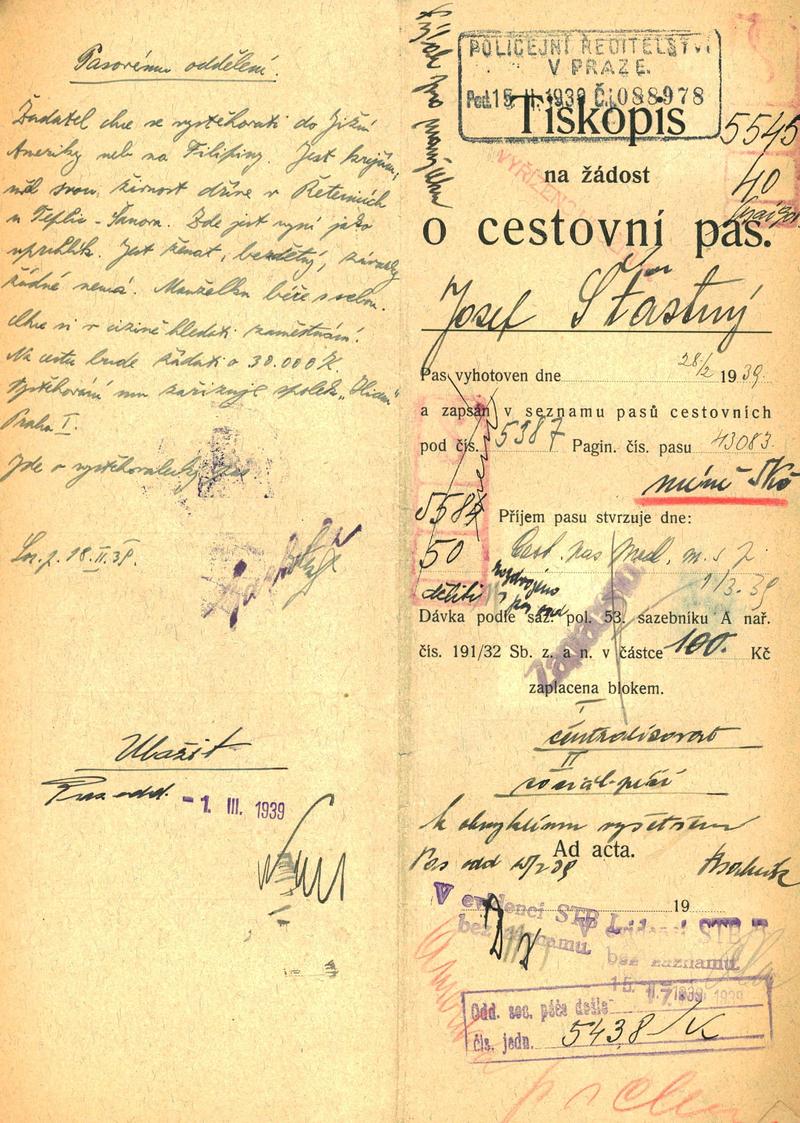 Pasovému oddělení.
Žadatel chce se vystěhovati do Jižní
Ameriky neb na Filipiny. Jest krejčím,
měl svou živnost dříve v Řetenicích
u Teplic-Šanova. Zde jest nyní jako
uprchlík. Jest ženat, bezdětný, závazky
žádné nemá. Manželku béře s sebou.
Chce si v cizině hledati zaměstnání.
Na cestu bude žádati o 30.000 K.
Vystěhování mu zařizuje spolek
Praha I.
Jde o vystěhovalecký pas
18.II.39.
Uložit
Pas. odd. - 1. III. 1939
POLICEJNÍ ŘEDITELSTVÍ
V PRAZE.
Pod. 15. II. 1939 Č.j. 088978
Tiskopis
5545
40
na žádost
VYŘÍZENO
o cestovní pas.
Josef Šťastný
Pas vyhotoven dne 28/2 1939.
a zapsán v seznamu pasů cestovních
pod čís. 5387 Pagin. čís. pasu 43083
5584
50
Příjem pasu stvrzuje dne:
1/3.39
Dávka podle saz. pol. 53. sazebníku A nař.
čís. 191/32 Sb. z. a n. v částce 100.- Kč
Zaplaceno
zaplacena blokem.
I
centralisovat
II
sociál. péči
k obvyklému vyšetření
Ad acta.
Pas odd
19
V evidenci STB I.
bez záznamu.
V evidenci STB II
bez záznamu.
15. II. 1939
Odd. soc. péče došlo
čís. jedn. 5438